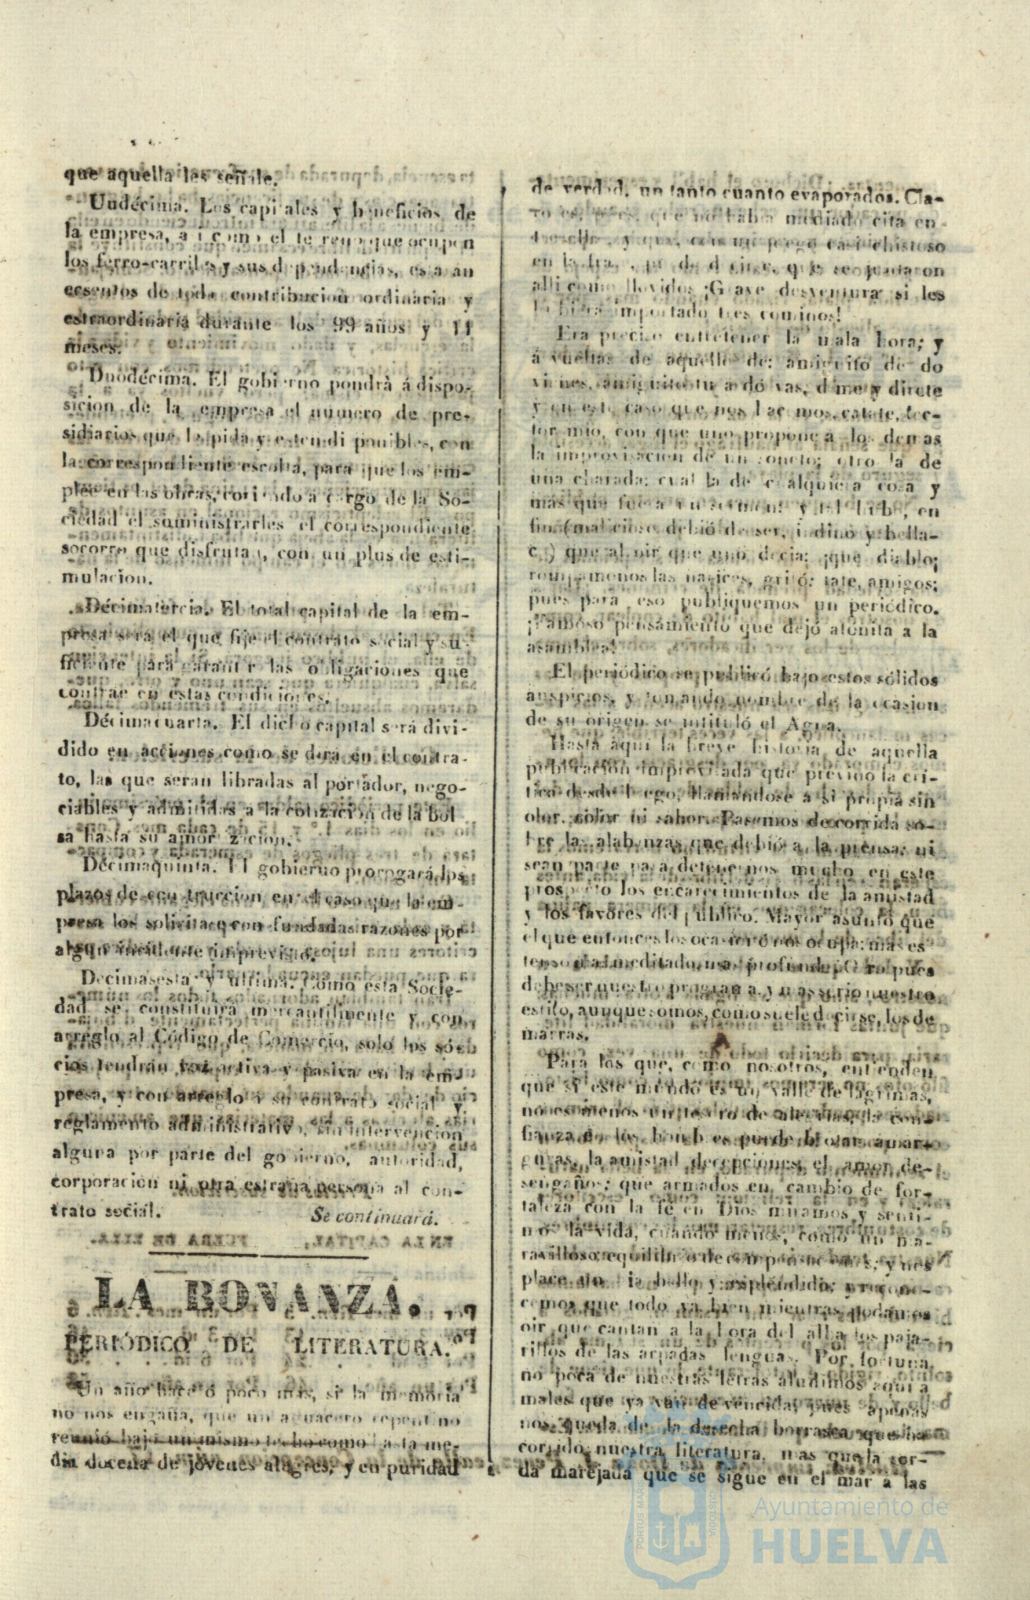 que aquella les señale.
Undécima. Los capitales y beneficios de
la empresa, asi como el terreno que ocupen
los ferro-carriles y sus dependencias, estarán
ecsentos de toda contribucion ordinaria y
estraordinaria durante los 99 años y 11
meses.
Duodécima. El gobierno pondrà á dispo-
sicion de la empresa el número de pre-
sidiarios que le pida y esten disponibles, con
la correspondiente escolta, para que los em-
plée en las obras, corriendo a cargo de la So-
ciedad el suministrarles el correspondiente
socorro que disfrutan, con un plus de esti-
mulacion.
Décimatercia. El total capital de la em-
presa será el que fije el contrato social y su-
ficiente para garantir las obligaciones que
contrae en estas condiciones.
Décimacuarta. El dicho capital será divi-
dido en acciones como se dirá en el contra-
to, las que seran libradas al portador, nego-
ciables y admitidas a la cotizacion de la bol
sa hasta su amortizacion.
Décimaquinta. El gobierno prorogará los
plazos de construccion en el caso que la em-
presa los solicitase con fundadas razones por
algun incidente imprevisto.
Decimasesta y última. Como esta Socie-
dad se constituirá mercantilmente y con
arreglo al Código de Comercio, solo los só-
cios tendrán voz activa y pasiva en la em-
presa, y con arreglo a su contrato social y
reglamento administrativo, sin intervencion
alguna por parte del gobierno, autoridad,
corporacion ni otra estraña persona al con-
trato social. Se continuará.
LA BONANZA.
PERIÓDICO DE LITERATURA.
Un año hace ó poco mas, si la memoria
no nos engaña, que un aguacero repentino
reunió bajo un mismo techo como hasta me-
dia docena de jóvenes alegres, y en puridad
de verdad, un tanto cuanto evaporados. Cla-
ro es, pues, que no habia mediado cita en-
tre ellos, y que, con un juego casi chistoso
en la frase, puede decirse, que se juntaron
alli como llovidos ¡Grave desventura si les
hubiera importado tres cominos!
Era preciso entretener la mala hora; y
á vueltas de aquello de: amiguito de do
vienes, amiguito tu a dó vas, dime y direte
y en este caso que nos hacemos, catate, lec-
tor mio, con que uno propone a los demas
la improvisacion de un soneto; otro la de
una charada; cual la de cualquiera cosa y
más que fuera
fin (malicioso debió de ser, indino y bella-
co) que al oir que uno decia: ¡que diablo;
rompamenos las narices, gritó: tate, amigos;
pues para eso publiquemos un periódico.
¡Famoso pensamiento que dejó atónita a la
asamblea!
El periódico se publicó bajo estos sólidos
auspicios, y tomando nombre de la ocasion
de su origen se intituló el Agua.
Hasta aqui la breve historia de aquella
publicacion improvisada que previno la crí-
tica desde luego, llamandose a si propia sin
olor, color ni sabor. Pasemos de corrida so-
bre las alabanzas que debió a la prensa; ni
sean parte para detenernos mucho en este
prospecto los encarecimientos de la amistad
y los favores del público. Mayor asunto que
el que entonces los ocasionó nos ocupa: mas es-
tenso, mas meditado, mas profundo, Grave pues
debe ser nuestro programa, y mas serio nuestro
estilo, aunque somos, como suele decirse, los de
marras.
Para los que, como nosotros, entienden
que si este mundo es un valle de lágrimas,
no es menos un tesoro de alegrias, la con-
fianza en los hombres puede brotar amar-
guras, la amistad decepciones, el amor de-
sengaños; que armados en cambio de for-
taleza con la fé en Dios miramos y senti-
mos la vida, cuando menos, como un ma-
ravilloso equilibrio de compensaciones; y nos
place de ella lo bello y esplendido; y recono-
cemos que todo va bien mientras podamos
oir que cantan a la hora del alba los paja-
rillos de las arpadas lenguas. Por fortuna,
no poca de nuestras letras aludimos aqui a
males que ya van de vencida; pues apenas
nos queda de la desecha borrasca que ha
corrido nuestra literatura, mas que la sor-
da marejada que se sigue en el mar a las
Ayuntamiento de
HUELVA